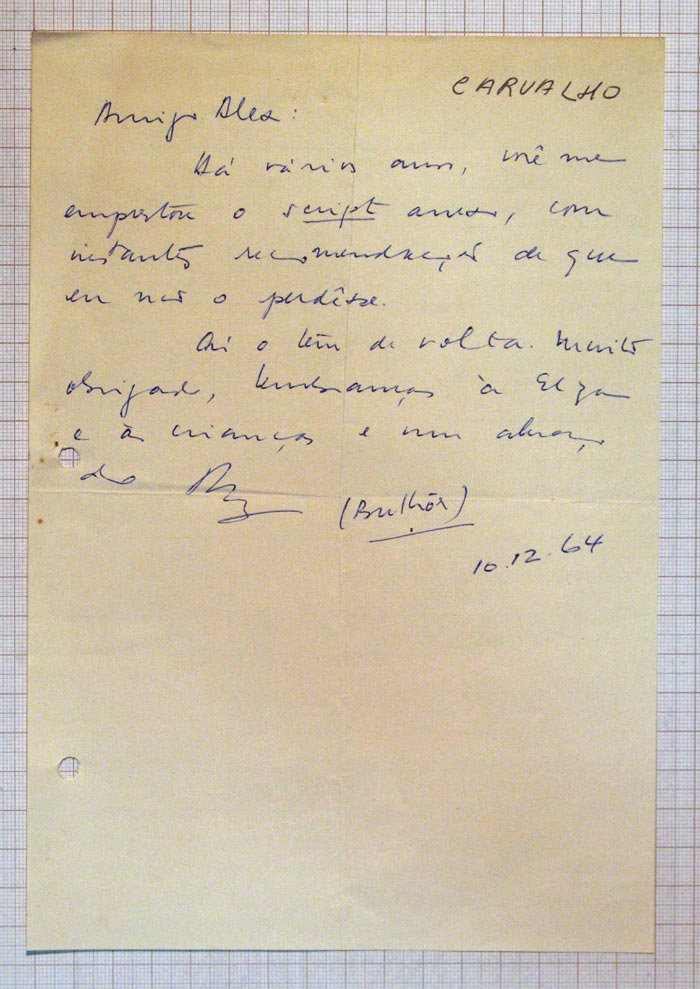 CARVALHO
Amigo Alex:
Há vários anos, você me
emprestou o script anexo, com
instantes recomendações de que
eu não o perdêsse.
Aí o tem de volta. Muito
obrigado, lembranças à Elza
e às crianças e um abraço
do
(Bulhões)
10.12.64